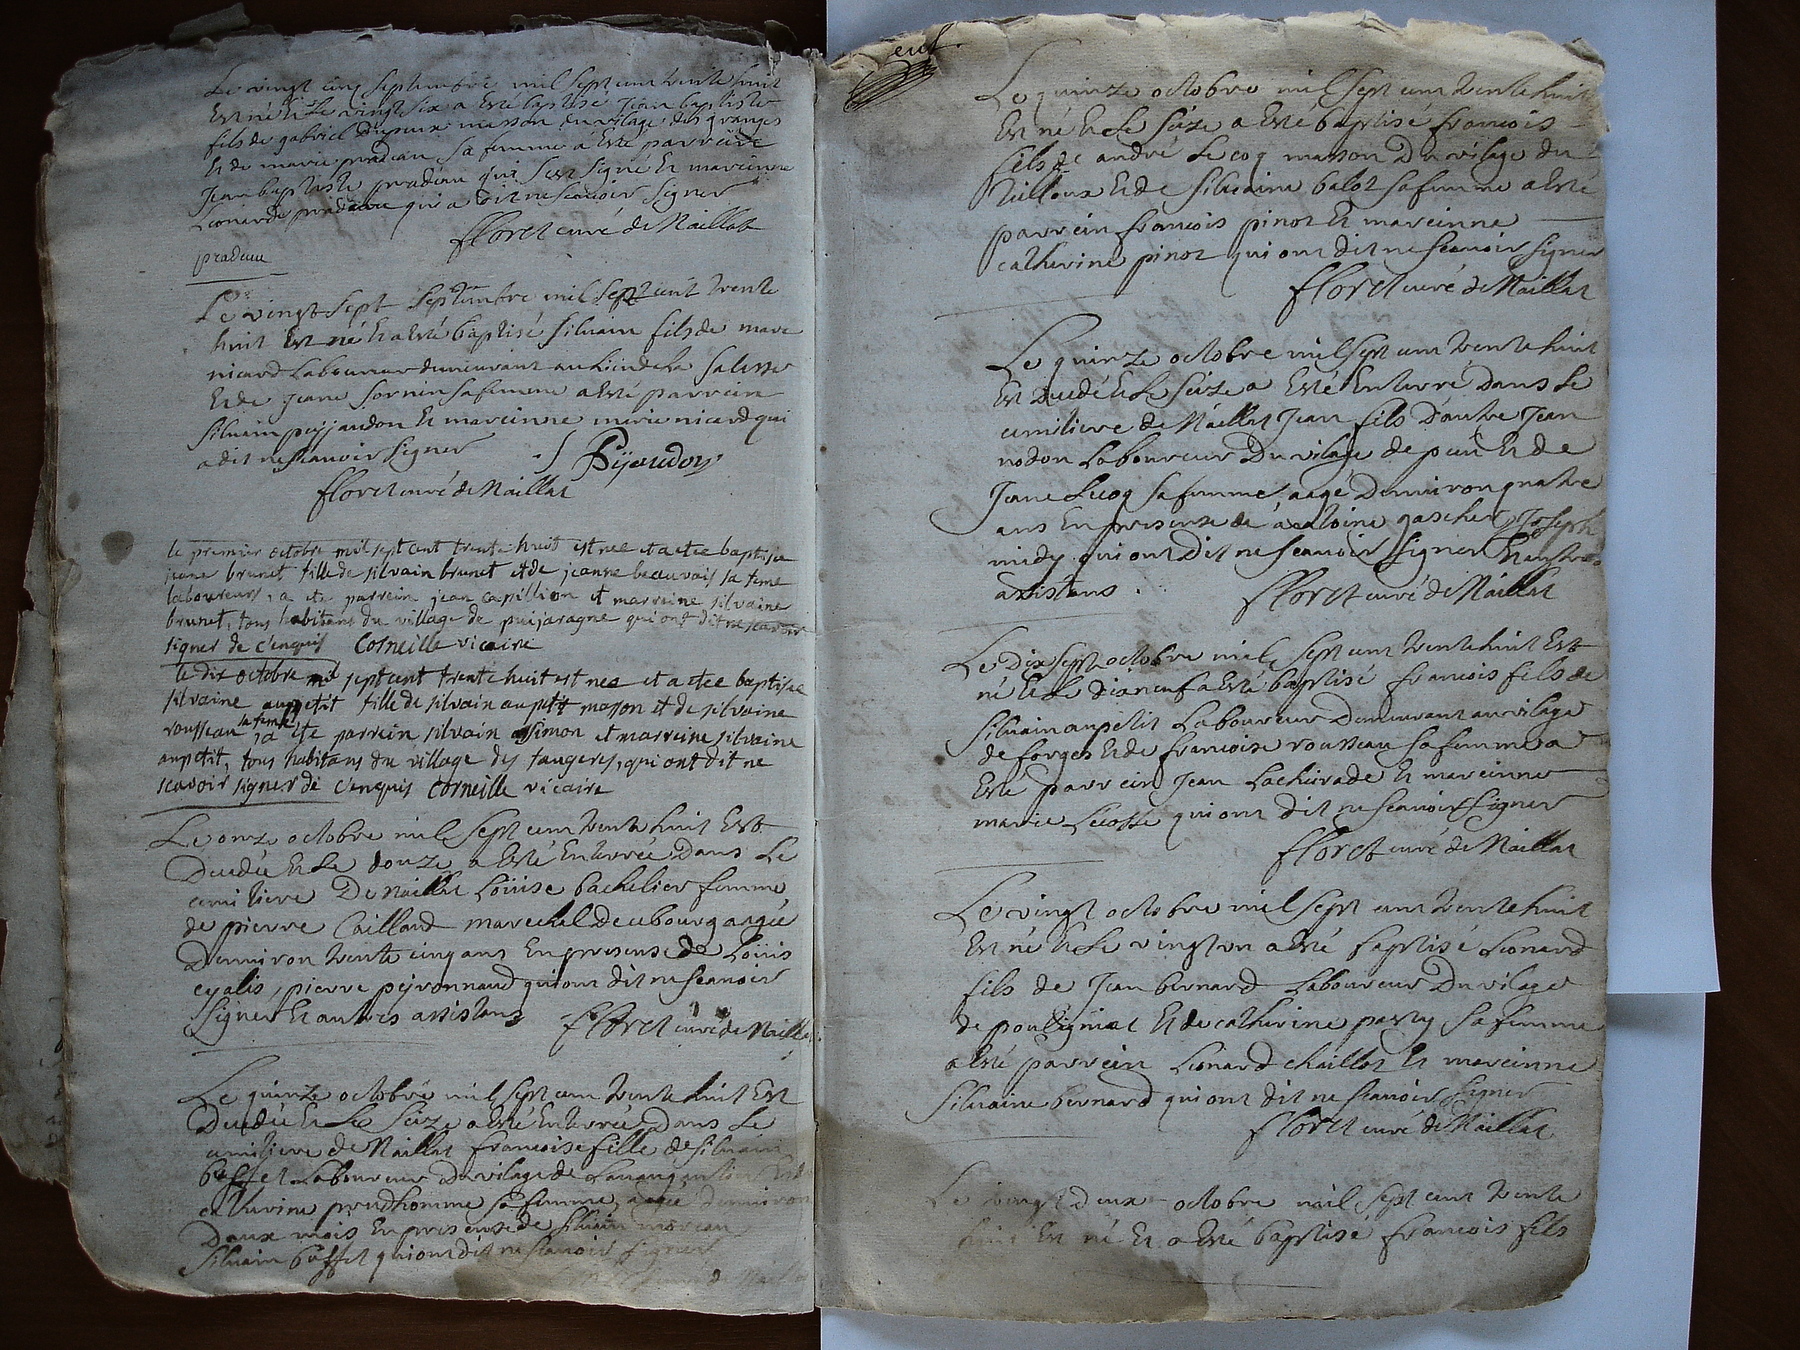 Le vingt cinq septembre mil sept cent trente huit
Est né & Le vingt six a Esté baptisé Jean baptiste
fils de gabriel Dupeux masson du vilage des granges
Et de marie pradeau sa femme a Esté parrein
Jean baptiste pradeau qui s'est signé Et mareinne
Leonarde pradeau qui a dit ne scavoir signer
floret curé de Naillat
pradeau
Le vingt Sept Septembre mil Sept cent trente
huit Est né Et a Esté baptisé Silvain fils de marc
nicard Laboureur demeurant au lieu de la Salesse
Et de Jeane Sornin sa femme a Esté parrein
Silvain peyjaudon Et mareinne marie nicard qui
a dit ne scavoir signer
S Pijaudon
floret curé de Naillat
le premier octobre mil sept cent trente huit est nee et a etee baptisee
jeane brunet fille de silvain brunet et de jeanne beauvais sa feme
laboureurs, a ete parrein jean capillion et marreine silvaine
brunet, tous habitans du village de puijaragne qui ont dit ne scavoir
signer de c'enquis Corneille vicaire
le dix octobre mil sept cent trente huit est nee et a etee baptisee
silvaine aupetit fille de silvain aupetit masson et de silvaine
rousseau sa feme, a ete parrein silvain simon et marreine silvaine
aupetit, tous habitans du village des faugeres, qui ont dit ne
scavoir signer de c'enquis Corneille vicaire
Le onze octobre mil Sept cent trente huit Est
Decedée Et Le douze a Esté Enterrée Dans Le
cemitiere De Naillat Loüise bachelier femme
de pierre Caillaud marechal De ce bourg aagée
d'environ trente cinq ans En presence de Loüis
cyalis, pierre peyronnaud qui ont dit ne scavoir
signer Et autres assistans floret curé de Naillat
Le quinze octobre mil sept cent trente huit Est
Decedée Et Le Seize a Esté Enterrée Dans Le
cemitiere de Naillat francoise fille de Silvain
buffet Laboureur du vilage de Et de
catherine prudhomme sa femme, aagée d'environ
Deux mois En presence de Silvain moreau
Silvain buffet qui ont dit ne scavoir signer
floret curé de Naillat
Le quinze octobre mil sept cent trente huit
Est né Et Le Seize a Esté baptisé francois
fils de andré Lecoq masson Du vilage du
tilloux Et de Silvaine balot sa femme a Esté
parrein francois pinot Et mareinne
catherine pinot qui ont dit ne scavoir signer
floret curé de Naillat
Le quinze octobre mil sept cent trente huit
Est Decedé Et Le Seize a Esté Enterré Dans Le
cemitiere de Naillat Jean fils d'autre Jean
nodon Laboureur Du vilage de peu Et de
Jeane Lecoq sa femme aagé D'environ quatre
ans En presence de antoine gascher Joseph
midy qui ont Dit ne scavoir signer Et autres
assistans . floret curé de Naillat
Le Dix Sept octobre mil sept cent trente huit Est
né Et Le dixneuf a Esté baptisé francois fils de
Silvain aupetit Laboureur Demeurant au vilage
de forges Et de francoise rousseau sa femme a
Esté parrein Jean Lachirade Et mareinne
marie Lecosse qui ont dit ne scavoir signer
floret curé de Naillat
Le vingt octobre mil sept cent trente huit
Est né Et Le vingt un a Esté baptisé Leonard
fils de Jean bernard Laboureur Du vilage
de pouligniat Et de catherine parry sa femme
a Esté parrein Leonard chaillot Et mareinne
Silvaine bernard qui ont dit ne scavoir signer
floret curé de Naillat
Le vingt deux octobre mil sept cent trente
huit Est né Et a Esté baptisé francois fils